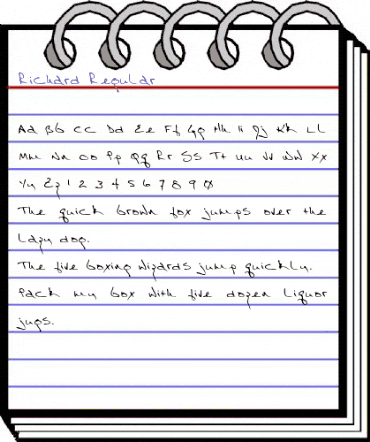 Richard Regular
Aa Bb Cc Dd Ee Ff Gg Hh Ii Jj Kk Ll
Mm Nn Oo Pp Qq Rr Ss Tt Uu Vv Ww Xx
Yy Zz 1 2 3 4 5 6 7 8 9 0
The quick brown fox jumps over the
lazy dog.
The five boxing wizards jump quickly.
Pack my box with five dozen liquor
jugs.